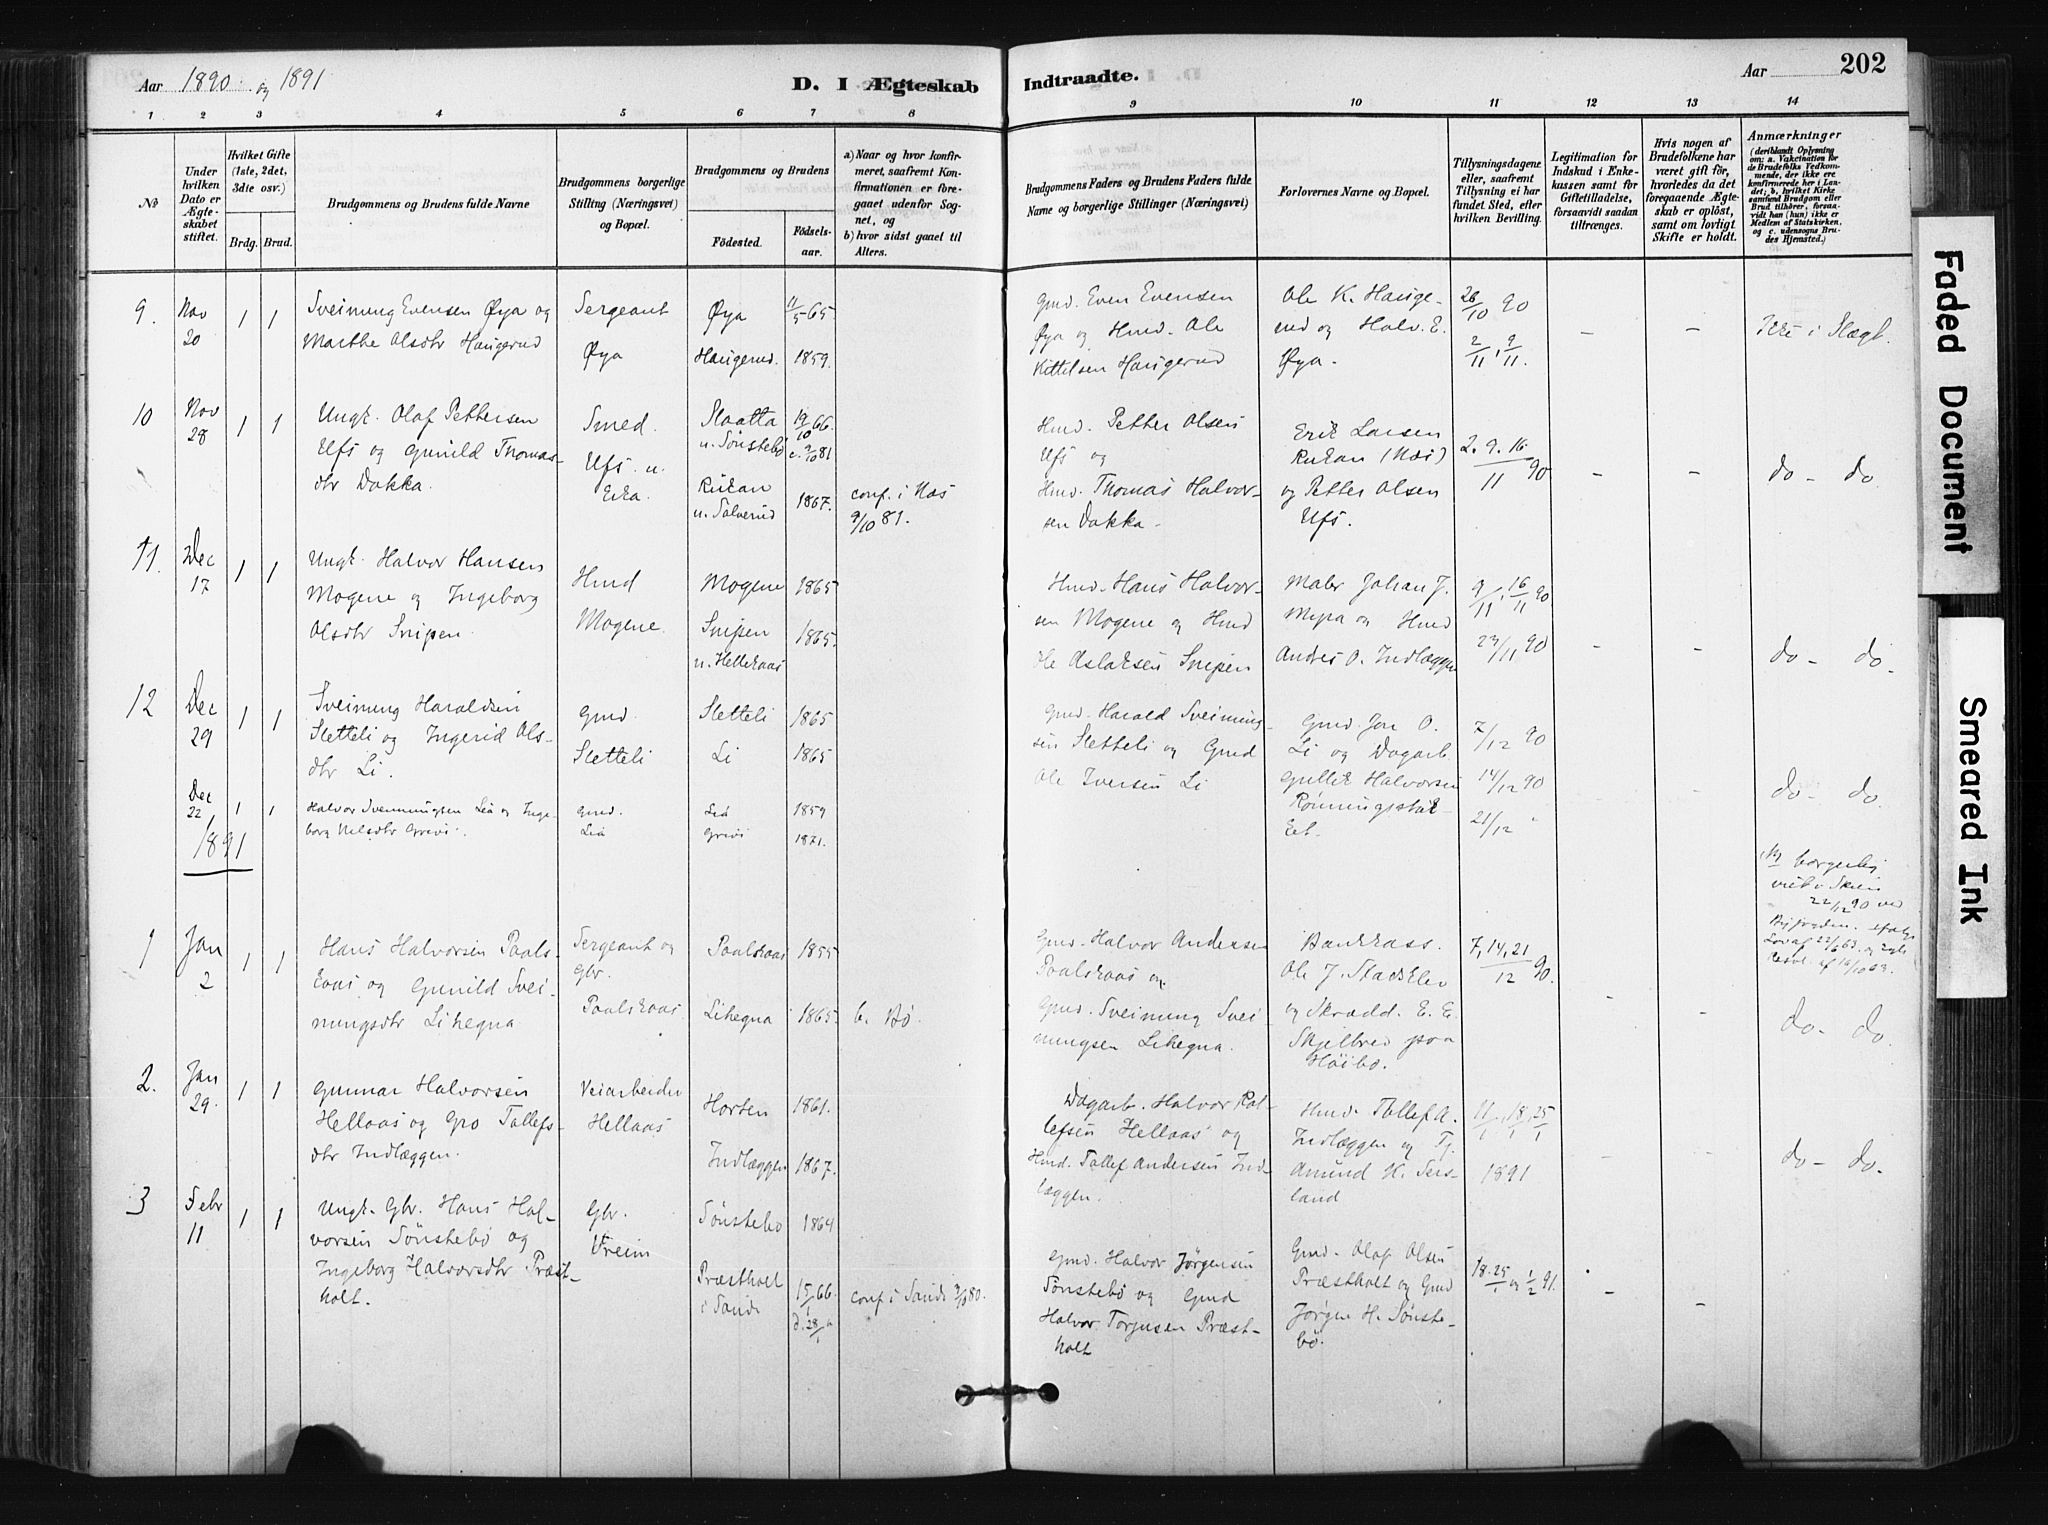 Aar 1890 og 1891
D. I Ægteskab
Indtraadte.
Aar
202
1 2 3 4 5 6 7 8 9 10 11 12 13 14
No
Under hvilken Dato er Ægteskabet stiftet.
Hvilket Gifte (1ste, 2det, 3die osv.)
Brdg. Brud.
Brudgommens og Brudens fulde Navne
Brudgommens borgerlige Stilling (Næringsvei) og Bopæl.
Brudgommens og Brudens
Födested.
Födselsaar.
a) Naar og hvor konfirmeret, saafremt Konfirmationen er foregaaet udenfor Sognet, og
b) hvor sidst gaaet til Alters.
Brudgommens Faders og Brudens Faders fulde Navne og borgerlige Stillinger (Næringsvei)
Forlovernes Navne og Bopæl.
Tillysningsdagene eller, saafremt Tillysning ei har fundet Sted, efter hvilken Bevilling.
Legitimation for Indskud i Enkekassen samt for Giftetilladelse, forsaavidt saadan tiltrænges.
Hvis nogen af Brudefolkene har været gift för, hvorledes da det foregaaende Ægteskab er oplöst, samt om lovligt Skifte er holdt.
Anmærkninger (deriblandt Oplysning om: a. Vakcination for de Brudefolks Vedkommende, der ikke ere konfirmerede her i Landet; b. hvilket Kirkesamfund Brudgom eller Brud tilhörer, forsaavidt han (hun) ikke er Medlem af Statskirken, og c. udensogns Brudes Hjemsted.)
9. Nov 20 1 1
Sveinung Evensen Øya og
Marthe Olsdtr Haugerud
Sergeant
Øya
Øya 11/5 65
Haugerud. 1859.
Gmd. Even Evensen
Øya og Hmd. Ole
Kittelsen Haugerud
Ole K. Hauge-
rud og Halv. E.
Øya.
26/10 90
2/11, 9/11.
– –
Ikke i Slægt.
10 Nov 28 1 1
Ungk. Olaf Pettersen
Ufs og Gunild Thomas-
dtr Dakka.
Smed.
Ufs. u.
Eika.
Slaatta 19/10 66.
u. Sønstebö c. 9/10 81
Rukan
u. Sølverud 1867.
conf. i Næs
9/10 81.
Hmd. Petter Olsen
Ufs og
Hmd. Thomas Halvor-
sen Dakka.
Erik Larsen
Rukan (Næs)
og Petter Olsen
Ufs.
2. 9. 16/11 90
– –
do – do
11. Dec 17 1 1
Ungk. Halvor Hansen
Mogene og Ingeborg
Olsdtr Snipen.
Hmd
Mogene.
Mogene 1865
Snipen 1865.
u. Hellekaas
Hmd. Hans Halvor-
sen Mogene og Hmd
Ole Aslaksen Snipen
Maler Johan J.
Myra og Hmd
Andres O. Indlæggen
9/11, 16/11 90
23/11 90
– –
do – do.
12 Dec 29 1 1
Sveinung Haraldsen
Sletteli og Ingerid Ols-
dtr Li.
Gmd.
Sletteli
Sletteli 1865
Li 1865
Gmd. Harald Sveinung-
sen Sletteli og Gmd
Ole Iversen Li
Gmd. Jon O.
Li og Dagarb.
Gullik Halvorsen
7/12 90
14/12 90
21/12 "
do – do.
Dec 22 1 1
Halvor Svennungsen Liå og Inge-
borg Nelsdtr Grivi.
Gmd.
Liå
Liå 1859
Grivi 1871.
borgerlig
viet i Skien
22/12 90 ved
Byfogden.
1891
1 Jan 2 1 1
Hans Halvorsen Paals-
kaas og Gunild Svei-
nungsdtr Lihegna
Sergeant og
Gbr.
Paalskaas.
Paalskaas 1855
Lihegna 1865.
b. Bö.
Gmd. Halvor Andersen
Paalskaas og
Gmd. Sveinung Svei-
nungsen Lihegna.
Bankkass.
Ole J. Stadskleiv
og Skrædd. E. E.
Skjelbred paa
Höibö.
7, 14, 21/12 90.
– –
do – do.
2. Jan 29. 1 1
Gunnar Halvorsen
Hellaas og Gro Tollefs-
dtr Indlæggen.
Veiarbeider
Hellaas
Horten 1861.
Indlæggen 1867.
Dagarb. Halvor Rol-
lefsen Hellaas og
Hmd. Tollef Andersen Ind-
læggen.
Hmd. Tollef A.
Indlæggen og Tj.
Amund K. Sers-
land
11/1, 18/1, 25/1
1891
– –
do – do.
3 Febr 11 1 1
Ungk. Gbr. Hans Hal-
vorsen Sönstebö og
Ingeborg Halvorsdtr Præst-
holt.
Gbr.
Vreim
Sönstebö 1864
Præstholt
i Sande 15/1 66.
d. 28/1 "
conf. i Sande 3/10 80.
Gmd. Halvor Jørgensen
Sönstebö og Gmd
Halvor Torjusen Præst-
holt
Gmd. Olaf Olsen
Præstholt og Gmd
Jørgen H. Sönste-
bö.
18. 25/1 og 1/2 91.
– –
Faded Document
Smeared Ink